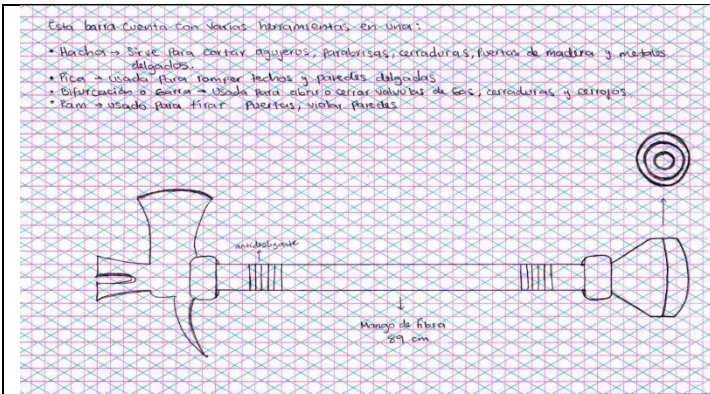 Esta barra cuenta con varias herramientas en una:
• Hacha → Sirve para cortar agujeros, parabrisas, cerraduras, Puertas de madera y metales
delgados.
• Pica → usada para romper techos y paredes delgadas
• Bifurcación o Garra → Usada para abrir o cerrar valvulas de Gas, cerraduras y cerrojos.
• Ram → usado para tirar Puertas, violar Paredes
antideslizante
Mango de fibra
89 cm